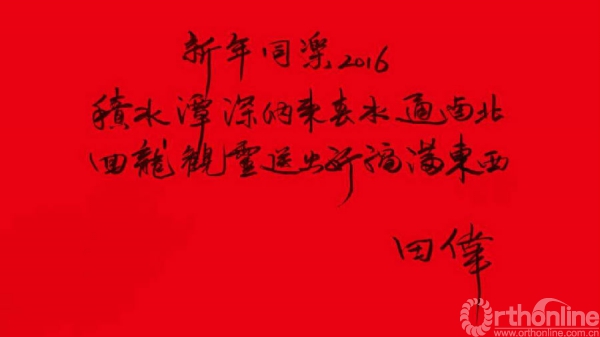 新年同樂 2016
積水潭深納来春水通南北
回龍觀靈送出祈福滿東西
田偉
Orthonline
www.orthonline.com.cn